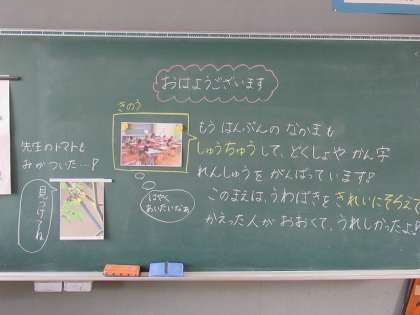 おはようございます
きのう
もう はんぶんの なかまも
しゅうちゅうして、どくしょや かん字
れんしゅうを がんばっています!
このまえは、うわばきを きれいにそろえて
かえった人が おおくて、うれしかったよ!
はやく
あいたいなぁ
先生のトマトも
みがついた…!
見つけてね